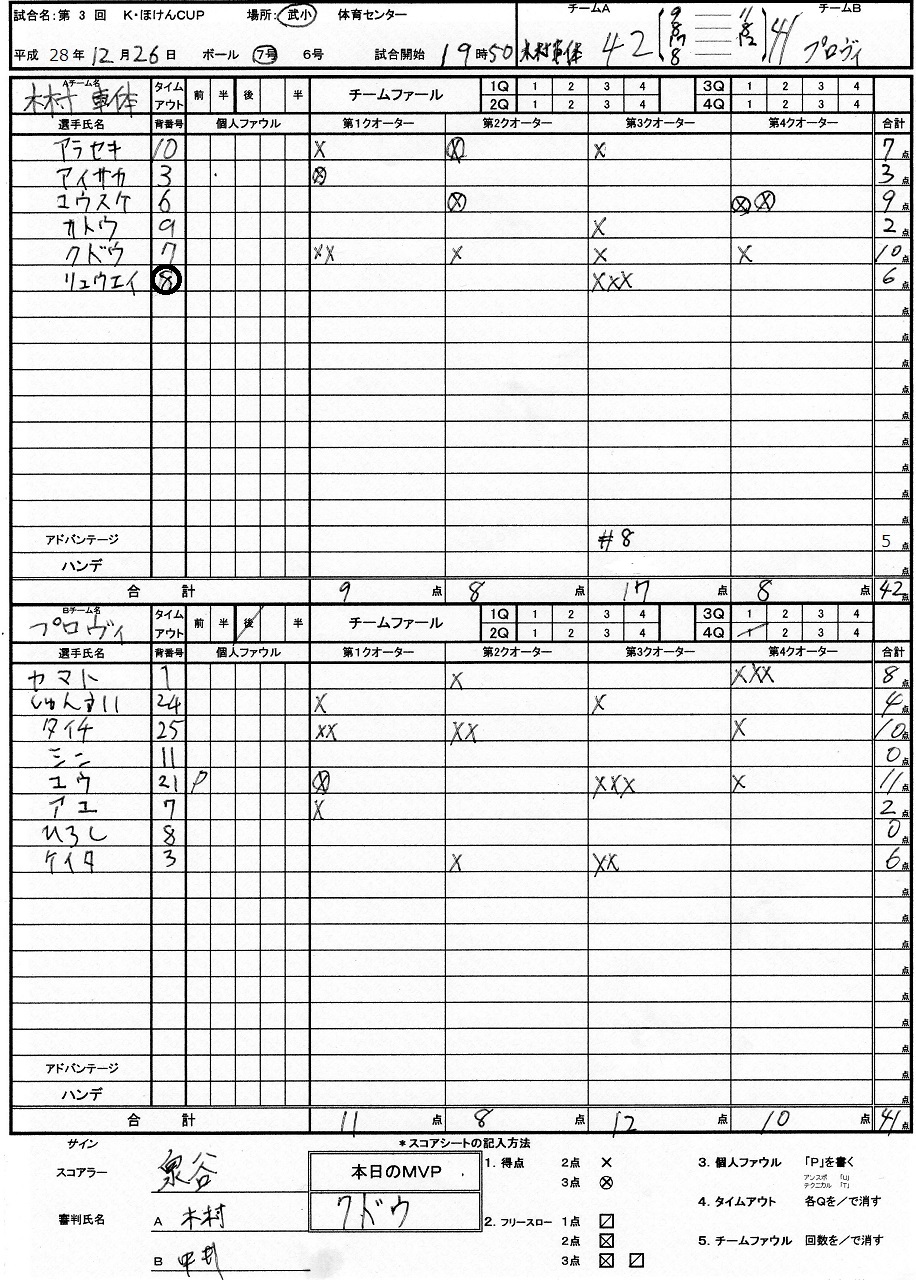 試合名:第 3 回 K・ほけんCUP 場所: 武小 体育センター
平成 28 年 12 月 26 日 ボール 7号 6号 試合開始 19 時 50
チームA チームB
木村車体 42 41 プロヴィ
9 11
8 8
17 12
8
Aチーム名 木村 車体 タイムアウト 前 半 後 半 チームファール 1Q 1 2 3 4 3Q 1 2 3 4
2Q 1 2 3 4 4Q 1 2 3 4
選手氏名 背番号 個人ファウル 第1クオーター 第2クオーター 第3クオーター 第4クオーター 合計
アラセキ 10 X Ⓧ X 7 点
アイサカ 3 Ⓧ 3 点
ユウスケ 6 Ⓧ Ⓧ Ⓧ 9 点
カトウ 9 X 2 点
クドウ 7 XX X X X 10 点
リュウエイ 8 XXX 6 点
点
点
点
点
点
点
点
点
点
アドバンテージ #8 5 点
ハンデ 点
合 計 9 点 8 点 17 点 8 点 42 点
Bチーム名 プロヴィ タイムアウト 前 半 後 半 チームファール 1Q 1 2 3 4 3Q 1 2 3 4
2Q 1 2 3 4 4Q 1 2 3 4
選手氏名 背番号 個人ファウル 第1クオーター 第2クオーター 第3クオーター 第4クオーター 合計
ヤマト 1 X XXX 8 点
24 X X 4 点
タイチ 25 XX XX X 10 点
シン 11 0 点
ユウ 21 P Ⓧ XXX X 11 点
アユ 7 X 2 点
ひろし 8 0 点
ケイタ 3 X XX 6 点
点
点
点
点
点
点
点
アドバンテージ 点
ハンデ 点
合 計 11 点 8 点 12 点 10 点 41 点
サイン
スコアラー 泉谷
審判氏名 A 木村
B 中村
本日のMVP
クドウ
*スコアシートの記入方法
1. 得点 2点 ×
3点 ⊗
2. フリースロー 1点 ☐
2点 ☒
3点 ☒ ☐
3. 個人ファウル 「P」を書く
アンスポ 「U」
テクニカル 「T」
4. タイムアウト 各Qを/で消す
5. チームファウル 回数を/で消す